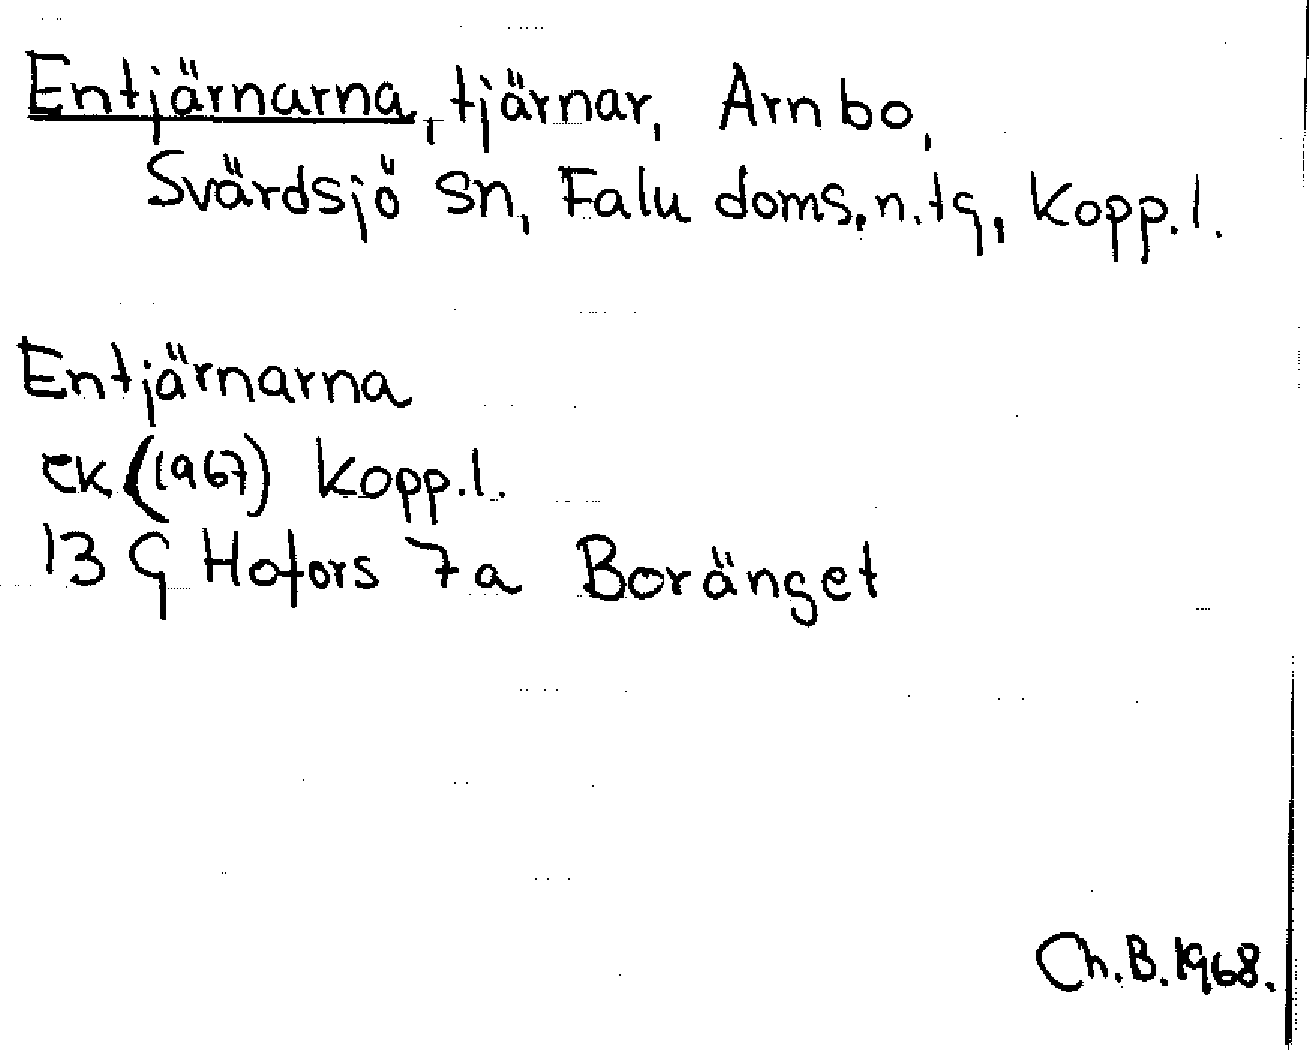 Entjärnarna, tjärnar, Arnbo,
Svärdsjö sn, Falu doms. n. tg, Kopp. l.
Entjärnarna
ek (1967) Kopp. l.
13 G Hofors 7a Boränget
Ch. B. 1968.